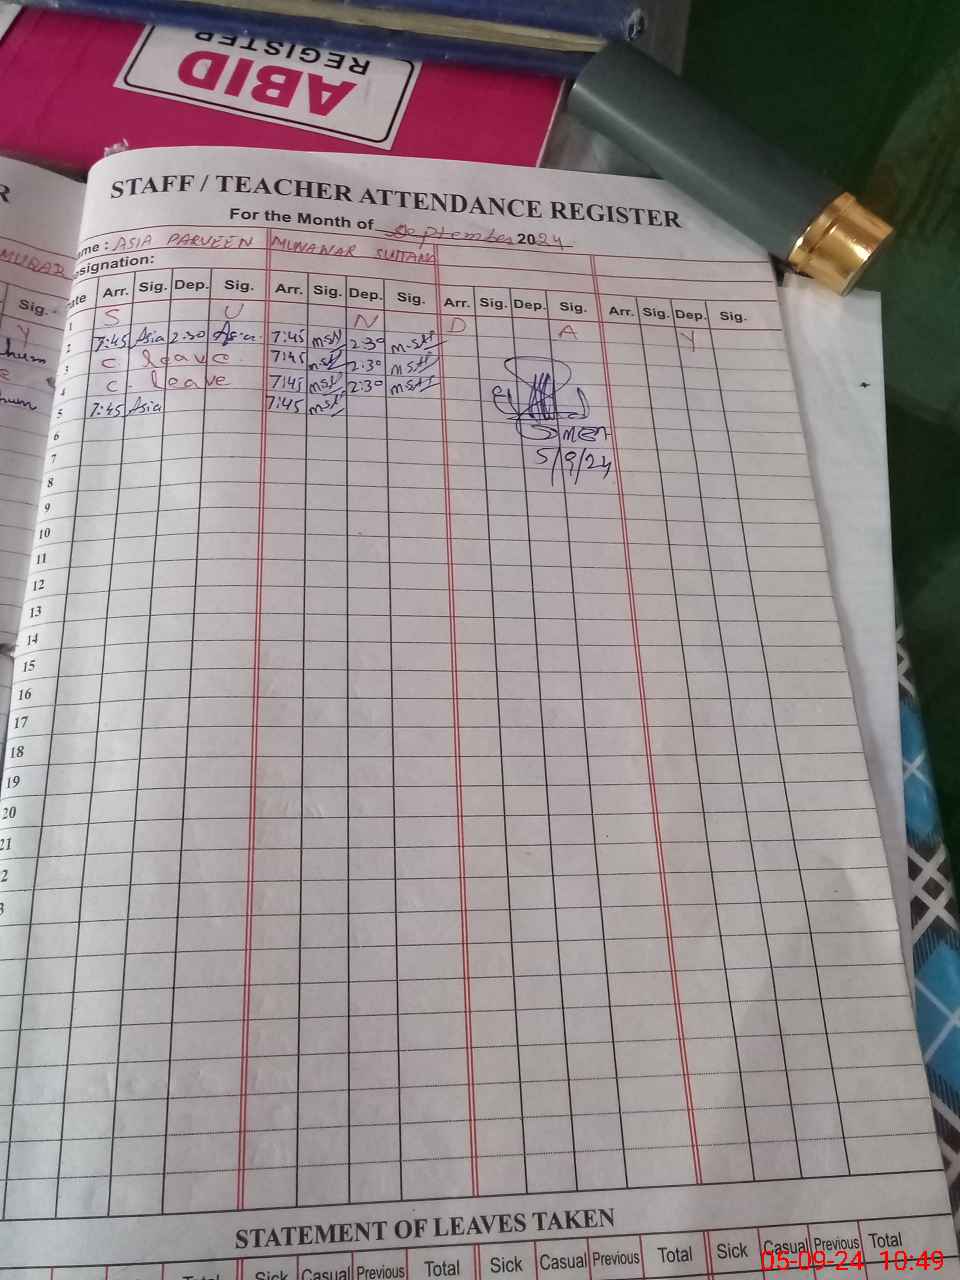 ABID
REGISTER
STAFF / TEACHER ATTENDANCE REGISTER
For the Month of September 2024
ame : ASIA PARVEEN MUNANAR SULTANA
esignation:
R
MURAD
Sig.
Y
ate Arr. Sig. Dep. Sig. Arr. Sig. Dep. Sig. Arr. Sig. Dep. Sig. Arr. Sig. Dep. Sig.
1 S U N D A Y
2 7:45 Asia 2:30 Asia 7:45 2:30
3 C. leave 7:45 2:30
4 C. leave 7:45 2:30
5 7:45 Asia 7:45
6
7 5/9/24
8
9
10
11
12
13
14
15
16
17
18
19
20
21
2
3
STATEMENT OF LEAVES TAKEN
Total Sick Casual Previous Total Sick Casual Previous Total Sick Casual Previous Total
05-09-24 10:49